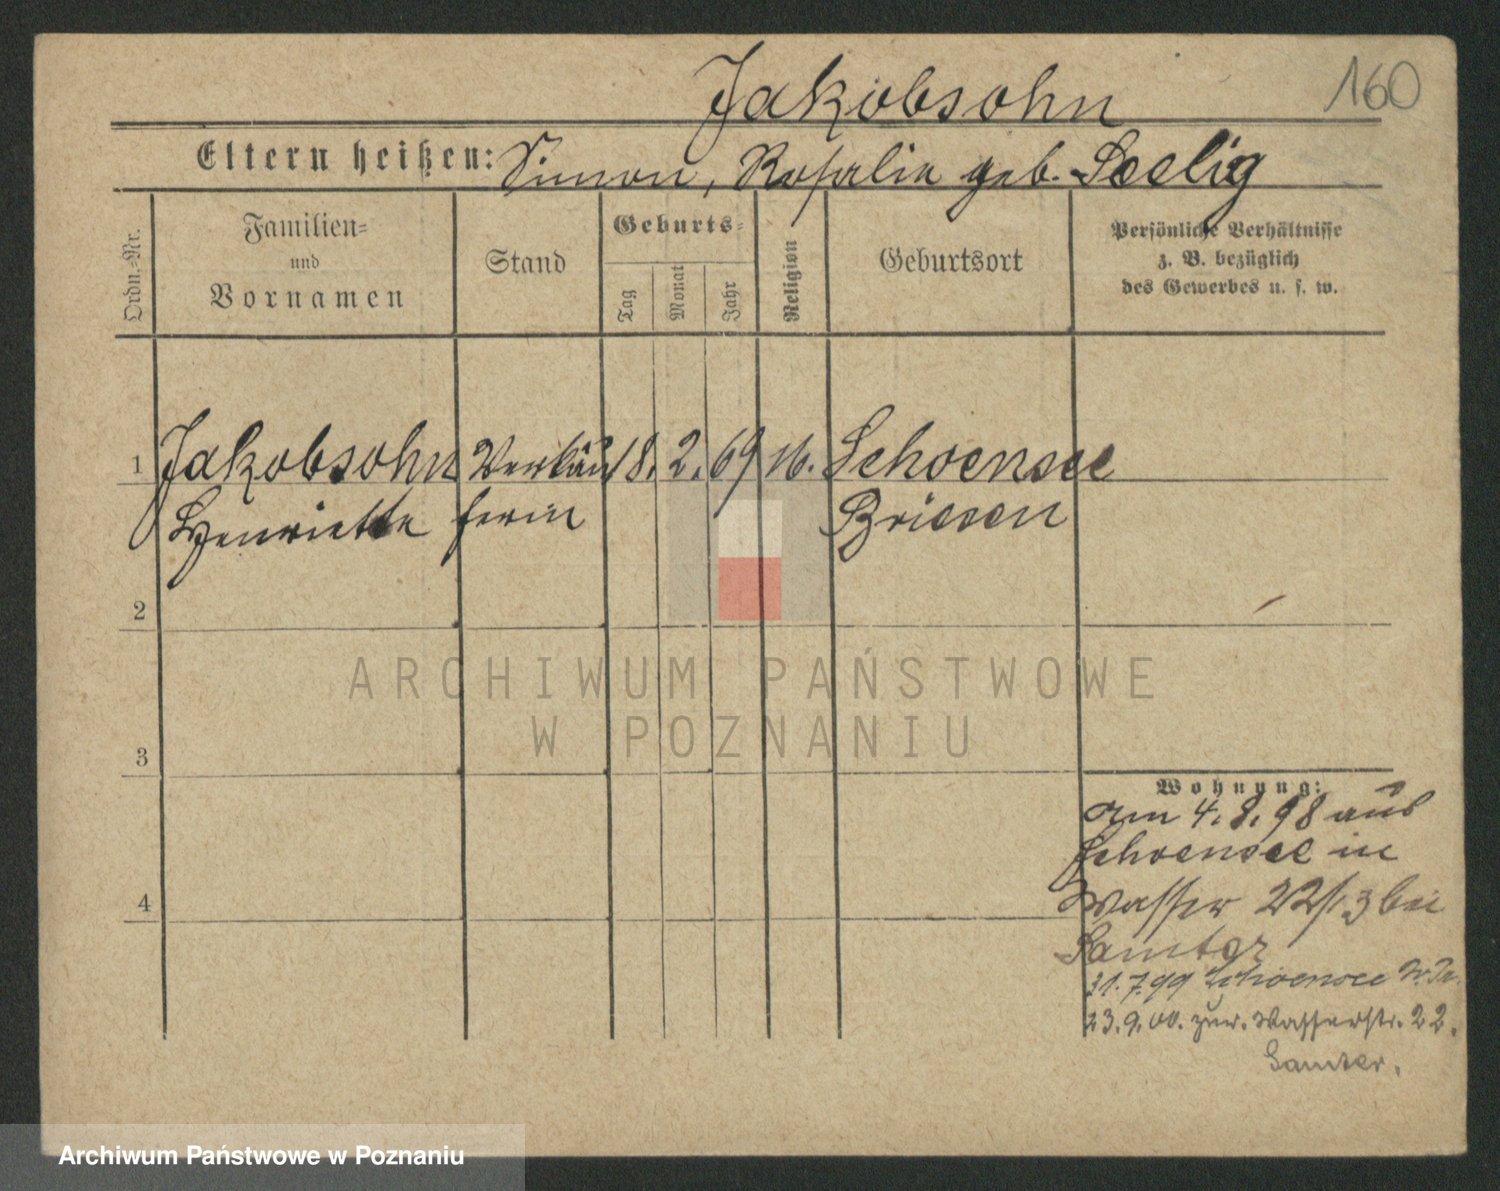 160
Jakobsohn
Eltern heißen: Simon, Rosalie geb. Seelig
Ordn.-Nr.
Familien-
und
Vornamen
Stand
Geburts-
Tag
Monat
Jahr
Religion
Geburtsort
Persönliche Verhältnisse
z. B. bezüglich
des Gewerbes u. s. w.
1 Jakobsohn Verkäu 18. 2. 69 m. Schoensee
Henriette ferin Briesen
2
3
4
ARCHIWUM PAŃSTWOWE
W POZNANIU
Wohnung:
am 4. 8. 98 aus
Schoensee in
Wasser 22/23 bei
Samter
31. 7. 99 Schoensee
23. 9. 00. zur. Wasserstr. 22.
Samter.
Archiwum Państwowe w Poznaniu